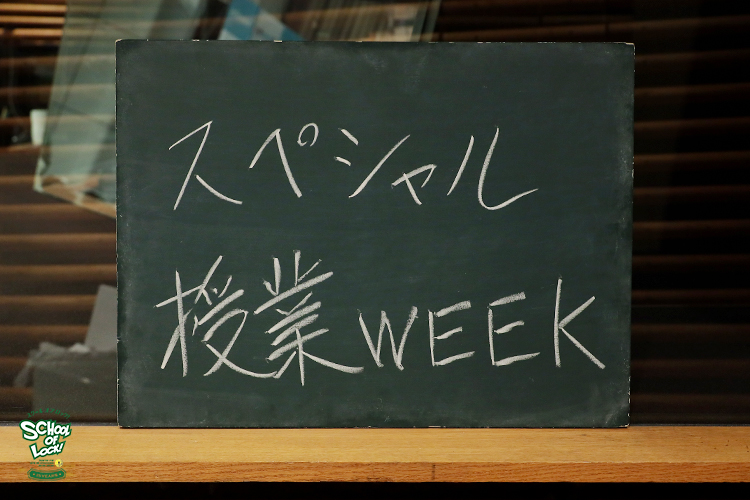 スペシャル
授業WEEK
SCHOOL
OF
LOCK!